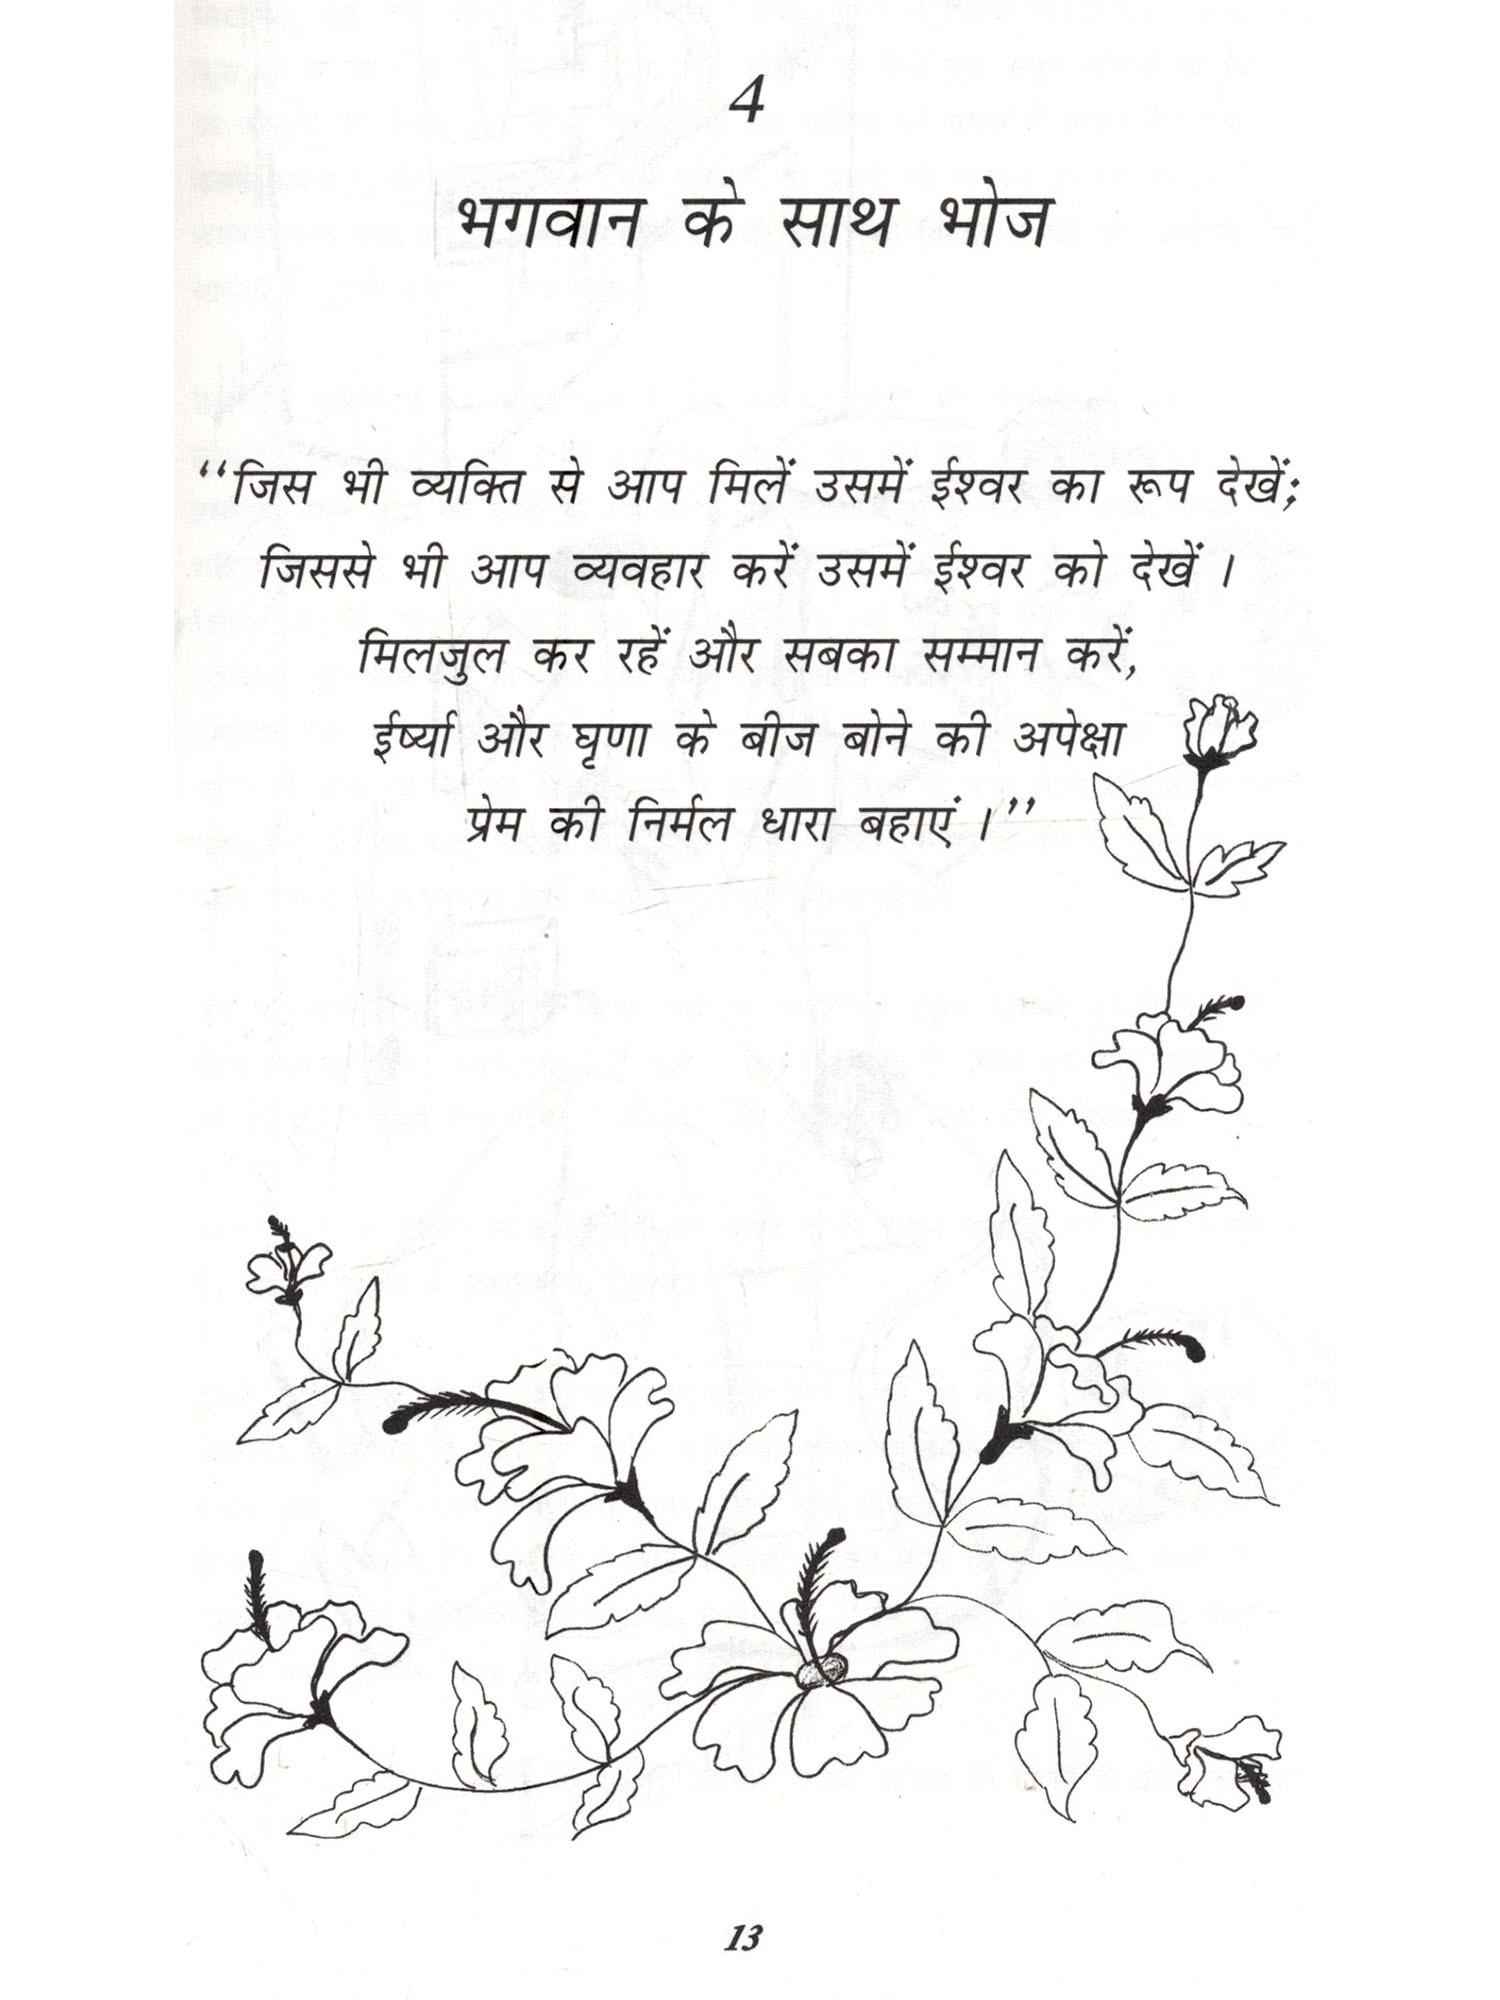 4
भगवान के साथ भोज
“जिस भी व्यक्ति से आप मिलें उसमें ईश्वर का रूप देखें;
जिससे भी आप व्यवहार करें उसमें ईश्वर को देखें ।
मिलजुल कर रहें और सबका सम्मान करें,
ईर्ष्या और घृणा के बीज बोने की अपेक्षा
प्रेम की निर्मल धारा बहाएं ।”
13